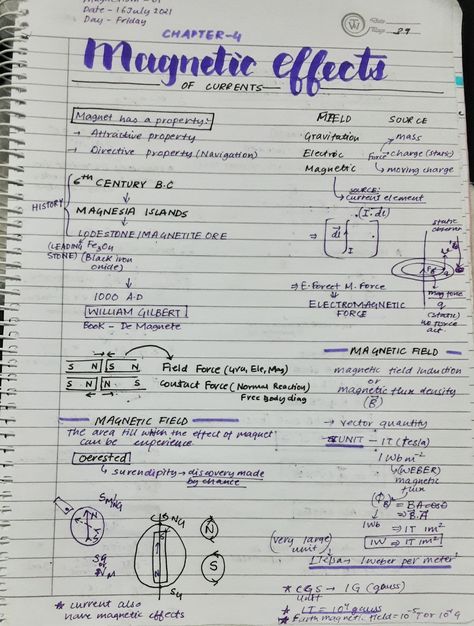 Date - 16 July 2021
Day - Friday
CHAPTER-4
Magnetic effects
OF CURRENTS
Magnet has a property:-
→ Attractive property
→ Directive property (Navigation)
FIELD SOURCE
Gravitation → mass
Electric Force → charge (static)
Magnetic → moving charge
SOURCE:
current element
(I.dl)
HISTORY
6th CENTURY B.C
MAGNESIA ISLANDS
LODESTONE/MAGNETITE ORE
(LEADING STONE) Fe3O4
(Black iron oxide)
1000 A.D
WILLIAM GILBERT
Book - De Magnete
⇒ dl I
static observer
mag force
q
(static)
no force act.
⇒ E.Force+ M.Force
ELECTROMAGNETIC
FORCE
S N S N
S N N S
Field Force (Gra, Ele, Mag)
Contact Force (Normal Reaction)
Free body diag
MAGNETIC FIELD
magnetic field induction
or
magnetic flux density
(B)
→ vector quantity
→ SI UNIT - 1T (tesla)
1 Wb m-2
(WEBER)
magnetic
flux
MAGNETIC FIELD
The area till which the effect of magnet
can be experience
Oersted
surendipity → discovery made
by chance
(ΦB) = BA cosθ
= B.A
1Wb ⇒ 1T 1m2
1W ⇒ 1T 1m2
(very large)
unit
1 Tesla = 1 weber per meter2
* CGS → 1G (gauss)
Unit
* 1T = 10⁴ gauss
* Earth magnetic field = 10-5 T or 10 G
N
S
N
S
N
S
* Current also
have magnetic effects